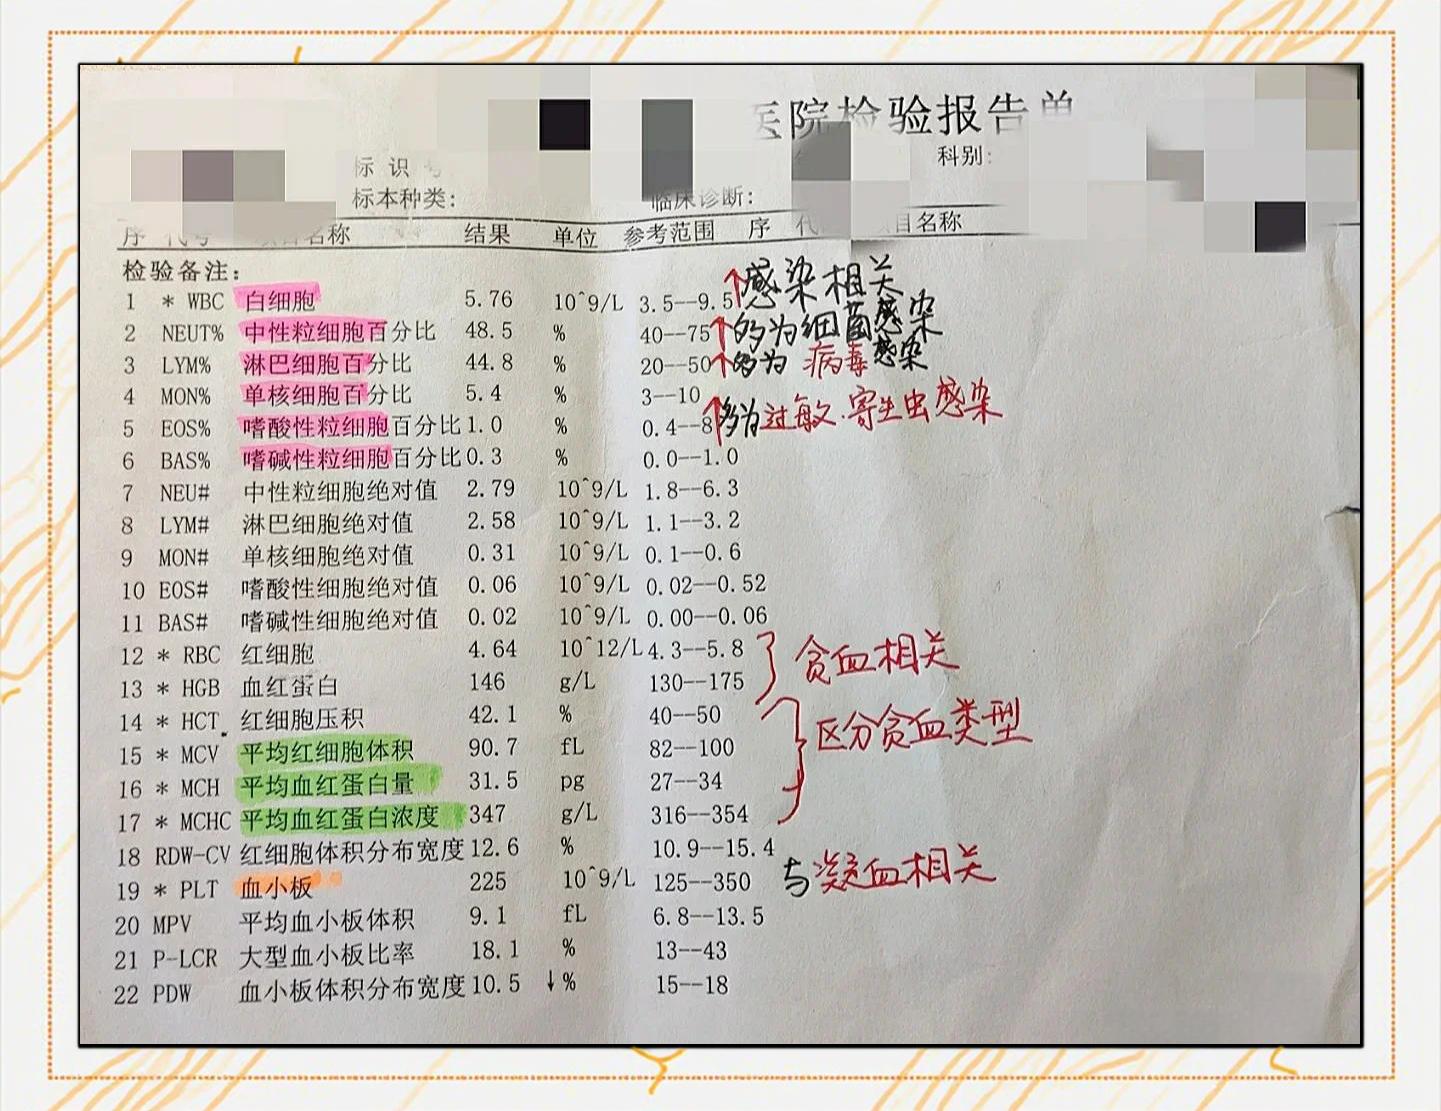 医院检验报告单
标识号
科别:
标本种类:
临床诊断:
序 代号 项目名称 结果 单位 参考范围 序 代 项目名称
检验备注:
1 * WBC 白细胞 5.76 10^9/L 3.5--9.5 ↑感染相关
2 NEUT% 中性粒细胞百分比 48.5 % 40--75 ↑多为细菌感染
3 LYM% 淋巴细胞百分比 44.8 % 20--50 ↑多为 病毒感染
4 MON% 单核细胞百分比 5.4 % 3--10
5 EOS% 嗜酸性粒细胞百分比 1.0 % 0.4--8 ↑多为过敏.寄生虫感染
6 BAS% 嗜碱性粒细胞百分比 0.3 % 0.0--1.0
7 NEU# 中性粒细胞绝对值 2.79 10^9/L 1.8--6.3
8 LYM# 淋巴细胞绝对值 2.58 10^9/L 1.1--3.2
9 MON# 单核细胞绝对值 0.31 10^9/L 0.1--0.6
10 EOS# 嗜酸性细胞绝对值 0.06 10^9/L 0.02--0.52
11 BAS# 嗜碱性细胞绝对值 0.02 10^9/L 0.00--0.06
12 * RBC 红细胞 4.64 10^12/L 4.3--5.8
贫血相关
13 * HGB 血红蛋白 146 g/L 130--175
14 * HCT 红细胞压积 42.1 % 40--50
区分贫血类型
15 * MCV 平均红细胞体积 90.7 fL 82--100
16 * MCH 平均血红蛋白量 31.5 pg 27--34
17 * MCHC 平均血红蛋白浓度 347 g/L 316--354
18 RDW-CV 红细胞体积分布宽度 12.6 % 10.9--15.4
19 * PLT 血小板 225 10^9/L 125--350 与凝血相关
20 MPV 平均血小板体积 9.1 fL 6.8--13.5
21 P-LCR 大型血小板比率 18.1 % 13--43
22 PDW 血小板体积分布宽度 10.5 ↓ % 15--18